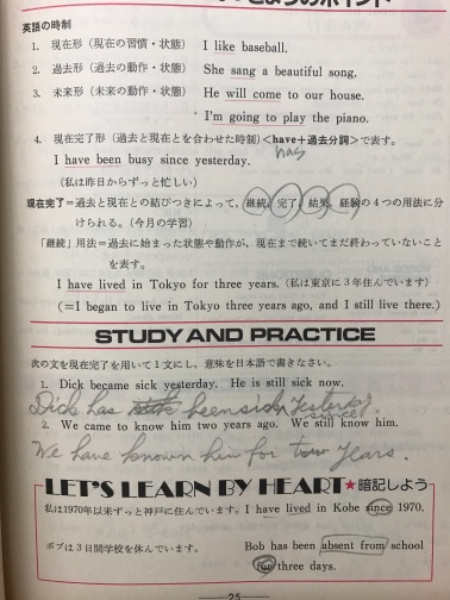 きょうのポイント
英語の時制
1. 現在形(現在の習慣・状態) I like baseball.
2. 過去形(過去の動作・状態) She sang a beautiful song.
3. 未来形(未来の動作・状態) He will come to our house.
I'm going to play the piano.
4. 現在完了形(過去と現在とを合わせた時制)<have+過去分詞>で表す。
has
I have been busy since yesterday.
(私は昨日からずっと忙しい)
現在完了=過去と現在との結びつきによって,継続,完了,結果,経験の4つの用法に分
けられる。(今月の学習)
「継続」用法=過去に始まった状態や動作が,現在まで続いてまだ終わっていないこと
を表す。
I have lived in Tokyo for three years. (私は東京に3年住んでいます)
(=I began to live in Tokyo three years ago, and I still live there.)
STUDY AND PRACTICE
次の文を現在完了を用いて1文にし,意味を日本語で書きなさい。
1. Dick became sick yesterday. He is still sick now.
Dick has been sick yesterday.
since
2. We came to know him two years ago. We still know him.
We have known him for two years.
LET'S LEARN BY HEART★暗記しよう
私は1970年以来ずっと神戸に住んでいます。I have lived in Kobe since 1970.
ボブは3日間学校を休んでいます。 Bob has been absent from school
for three days.
25